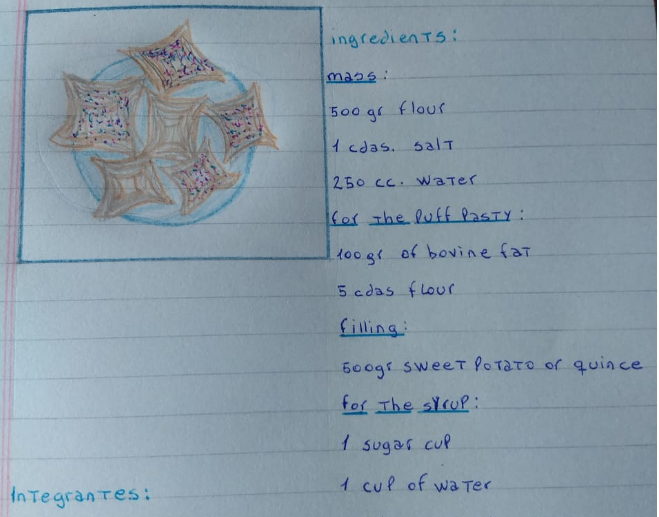 ingredients:
mass:
500 gr flour
1 cdas. salt
250 cc. water
for the puff pasty:
100 gr of bovine fat
5 cdas flour
filling:
500 gr sweet potato or quince
for the syrup:
1 sugar cup
1 cup of water
Integrantes: